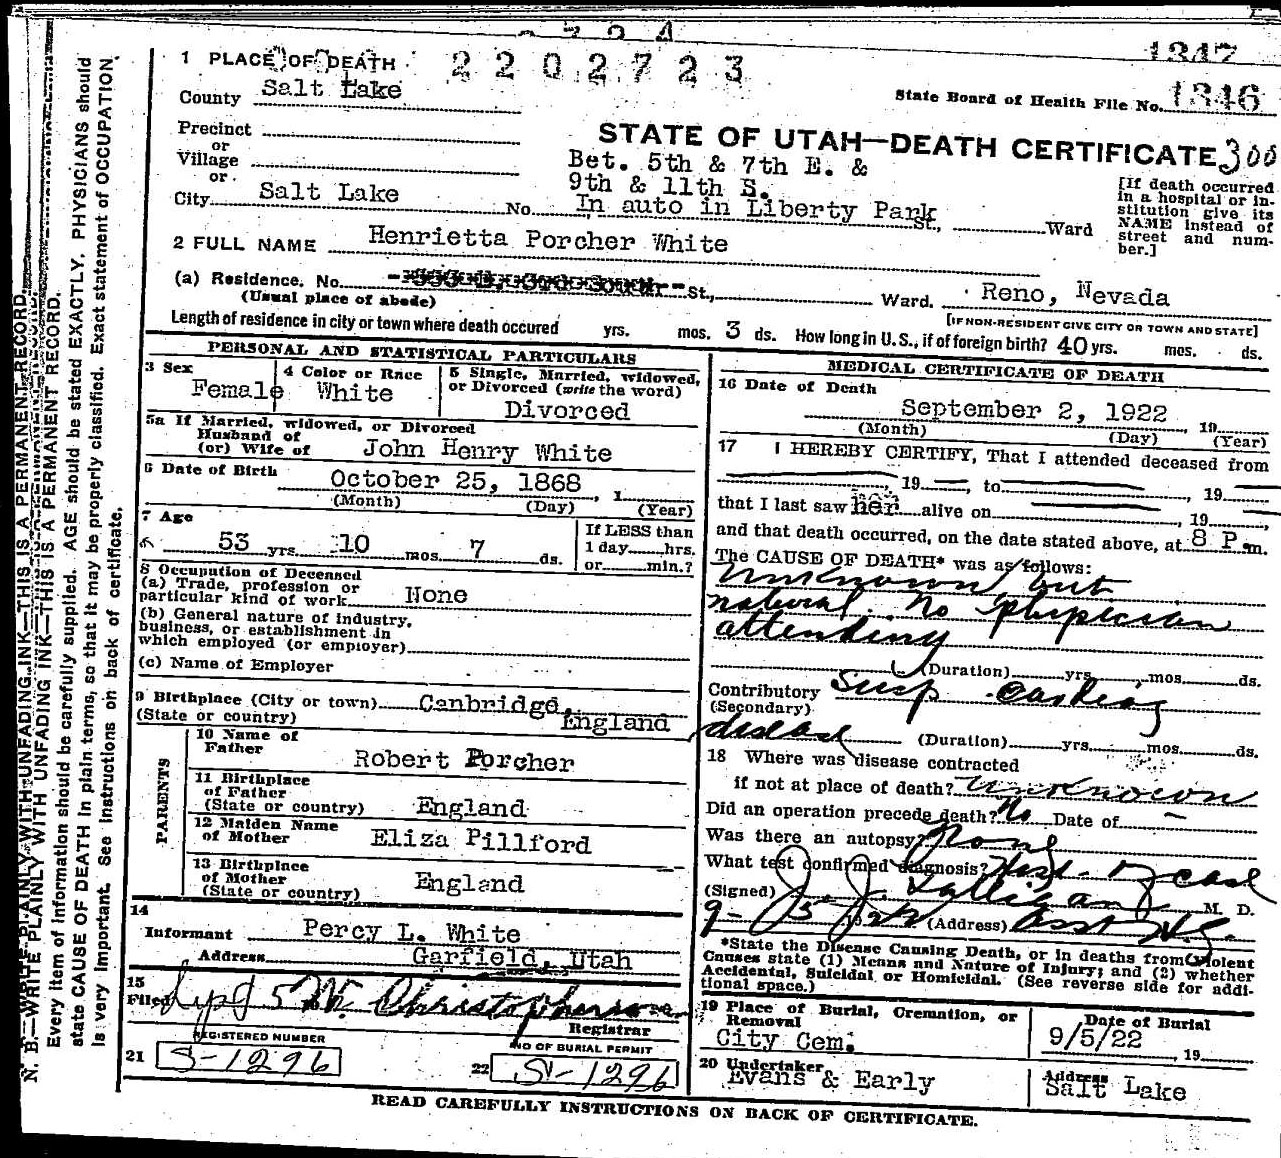 1347
1 PLACE OF DEATH
2202723
County Salt Lake
State Board of Health File No. 1346
Precinct
or
Village
or
City Salt Lake
STATE OF UTAH—DEATH CERTIFICATE 300
Bet. 5th & 7th E. &
9th & 11th S.
No. In auto in Liberty Park St., Ward
[If death occurred
in a hospital or in-
stitution give its
NAME instead of
street and num-
ber.]
2 FULL NAME Henrietta Porcher White
(a) Residence. No. St., Ward. Reno, Nevada
(Usual place of abode) [IF NON-RESIDENT GIVE CITY OR TOWN AND STATE]
Length of residence in city or town where death occured yrs. mos. 3 ds. How long in U. S., if of foreign birth? 40 yrs. mos. ds.
PERSONAL AND STATISTICAL PARTICULARS
3 Sex
Female
4 Color or Race
White
5 Single, Married, widowed,
or Divorced (write the word)
Divorced
5a If Married, widowed, or Divorced
Husband of
(or) Wife of John Henry White
6 Date of Birth October 25, 1868, 1
(Month) (Day) (Year)
7 Age
53 yrs. 10 mos. 7 ds.
If LESS than
1 day hrs.
or min.?
8 Occupation of Deceased
(a) Trade, profession or
particular kind of work None
(b) General nature of industry,
business, or establishment in
which employed (or employer)
(c) Name of Employer
9 Birthplace (City or town) Canbridge,
(State or country) England
PARENTS
10 Name of
Father Robert Porcher
11 Birthplace
of Father
(State or country) England
12 Maiden Name
of Mother Eliza Pillford
13 Birthplace
of Mother
(State or country) England
14
Informant Percy L. White
Address Garfield, Utah
15
Filed 5 Christopherson
Registrar
REGISTERED NUMBER
21 S-1296
NO OF BURIAL PERMIT
22 S-1296
MEDICAL CERTIFICATE OF DEATH
16 Date of Death
September 2, 1922, 19
(Month) (Day) (Year)
17 I HEREBY CERTIFY, That I attended deceased from
, 19 , to , 19
that I last saw her alive on , 19 ,
and that death occurred, on the date stated above, at 8 P.m.
The CAUSE OF DEATH* was as follows:
Unknown but
natural. No physician
attending
(Duration) yrs. mos. ds.
Contributory Susp. cardiac
(Secondary)
disease (Duration) yrs. mos. ds.
18 Where was disease contracted
if not at place of death? Unknown
Did an operation precede death? No Date of —
Was there an autopsy? None
What test confirmed diagnosis? Hist. of case
(Signed) J. J. M. D.
9-5 1922 (Address) Asst
*State the Disease Causing Death, or in deaths from Violent
Causes state (1) Means and Nature of Injury; and (2) whether
Accidental, Suicidal or Homicidal. (See reverse side for addi-
tional space.)
19 Place of Burial, Cremation, or
Removal
City Cem.
Date of Burial
9/5/22, 19
20 Undertaker
Evans & Early
Address
Salt Lake
READ CAREFULLY INSTRUCTIONS ON BACK OF CERTIFICATE.
N. B.—WRITE PLAINLY WITH UNFADING INK—THIS IS A PERMANENT RECORD.
Every item of information should be carefully supplied. AGE should be stated EXACTLY. PHYSICIANS should
state CAUSE OF DEATH in plain terms, so that it may be properly classified. Exact statement of OCCUPATION
is very important. See instructions on back of certificate.